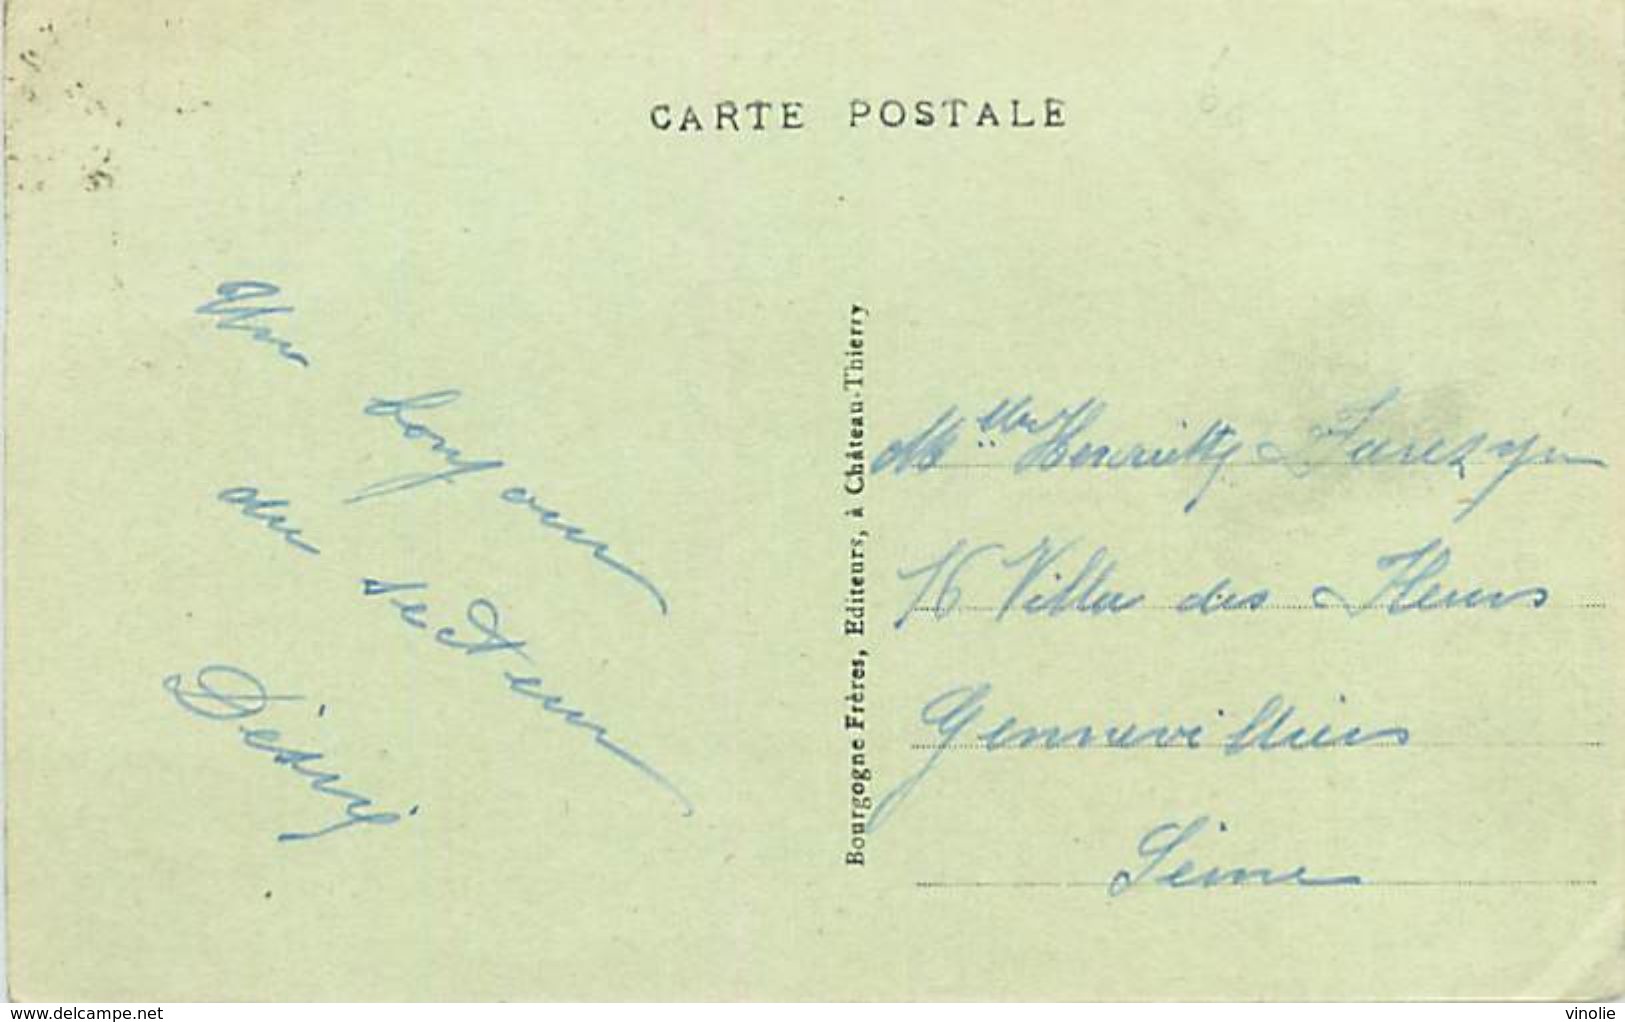 CARTE POSTALE
Un
bonjour
du
secteur
Désiré
Bourgogne Frères, Editeurs, à Château-Thierry
Melle Henriette
16 Villa des Fleurs
Gennevilliers
Seine
www.delcampe.net
vinolie